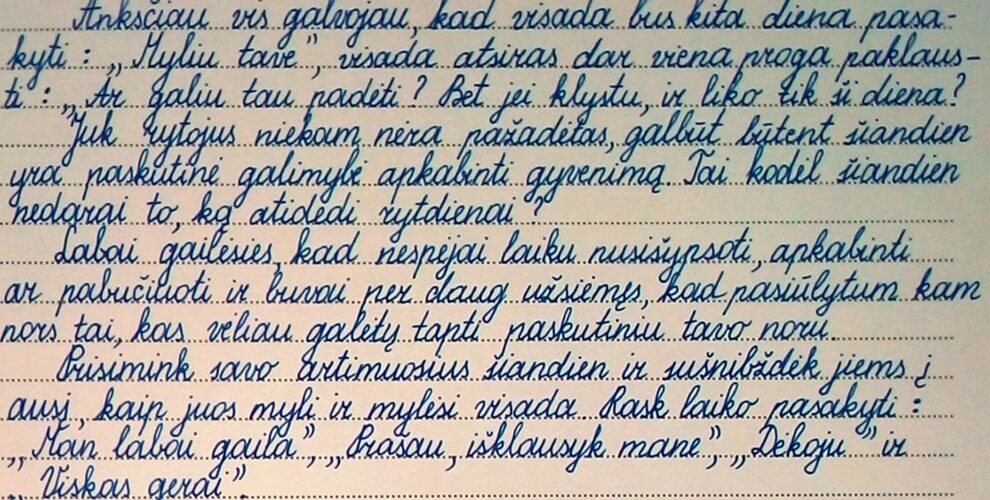 Anksčiau vis galvojau, kad visada bus kita diena pasa-
kyti: „Myliu tave", visada atsiras dar viena proga paklaus-
ti: „Ar galiu tau padėti? Bet jei klystu, ir liko tik ši diena?
Juk rytojus niekam nėra pažadėtas, galbūt būtent šiandien
yra paskutinė galimybė apkabinti gyvenimą. Tai kodėl šiandien
nedarai to, ką atidedi rytdienai?
Labai gailėsies, kad nespėjai laiku nusišypsoti, apkabinti
ar pabučiuoti ir buvai per daug užsiėmęs, kad pasiūlytum kam
nors tai, kas vėliau galėtų tapti paskutiniu tavo noru.
Prisimink savo artimuosius šiandien ir sušnibždėk jiems į
ausį, kaip juos myli ir mylėsi visada. Rask laiko pasakyti:
„Man labai gaila", „Prašau, išklausyk mane", „Dėkoju" ir
„Viskas gerai".